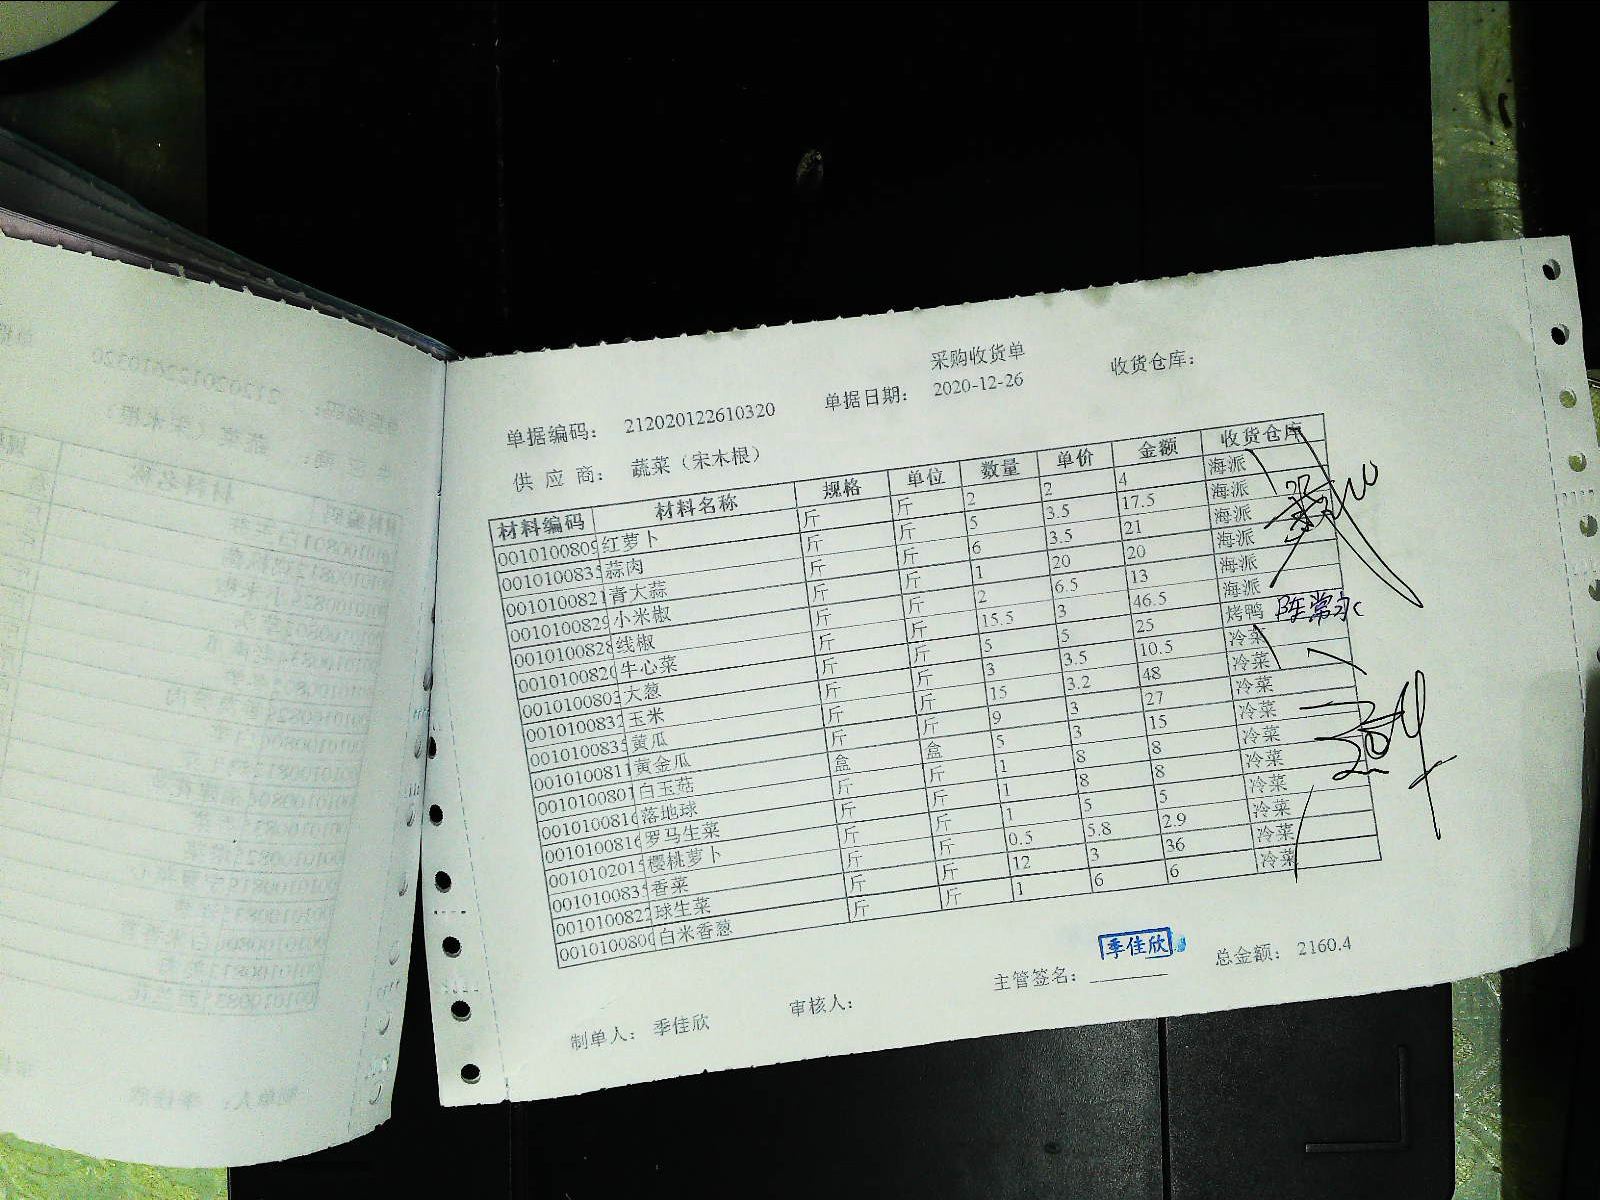 采购收货单
单据编码： 212020122610320 单据日期： 2020-12-26 收货仓库：
供 应 商： 蔬菜（宋木根）
材料编码 材料名称 规格 单位 数量 单价 金额 收货仓库
0010100809 红萝卜 斤 斤 2 2 4 海派
001010083 蒜肉 斤 斤 5 3.5 17.5 海派
0010100821 青大蒜 斤 斤 6 3.5 21 海派
0010100829 小米椒 斤 斤 1 20 20 海派
0010100828 线椒 斤 斤 2 6.5 13 海派
001010082 牛心菜 斤 斤 15.5 3 46.5 海派
001010080 大葱 斤 斤 5 5 25 烤鸭 陈常永
0010100832 玉米 斤 斤 3 3.5 10.5 冷菜
001010083 黄瓜 斤 斤 15 3.2 48 冷菜
0010100811 黄金瓜 斤 斤 9 3 27 冷菜
0010100801 白玉菇 盒 盒 5 3 15 冷菜
001010081 落地球 斤 斤 1 8 8 冷菜
001010081 罗马生菜 斤 斤 1 8 8 冷菜
001010201 樱桃萝卜 斤 斤 1 5 5 冷菜
001010083 香菜 斤 斤 0.5 5.8 2.9 冷菜
0010100822 球生菜 斤 斤 12 3 36 冷菜
001010080 白米香葱 斤 斤 1 6 6 冷菜
制单人： 季佳欣 审核人： 主管签名： 季佳欣 总金额： 2160.4